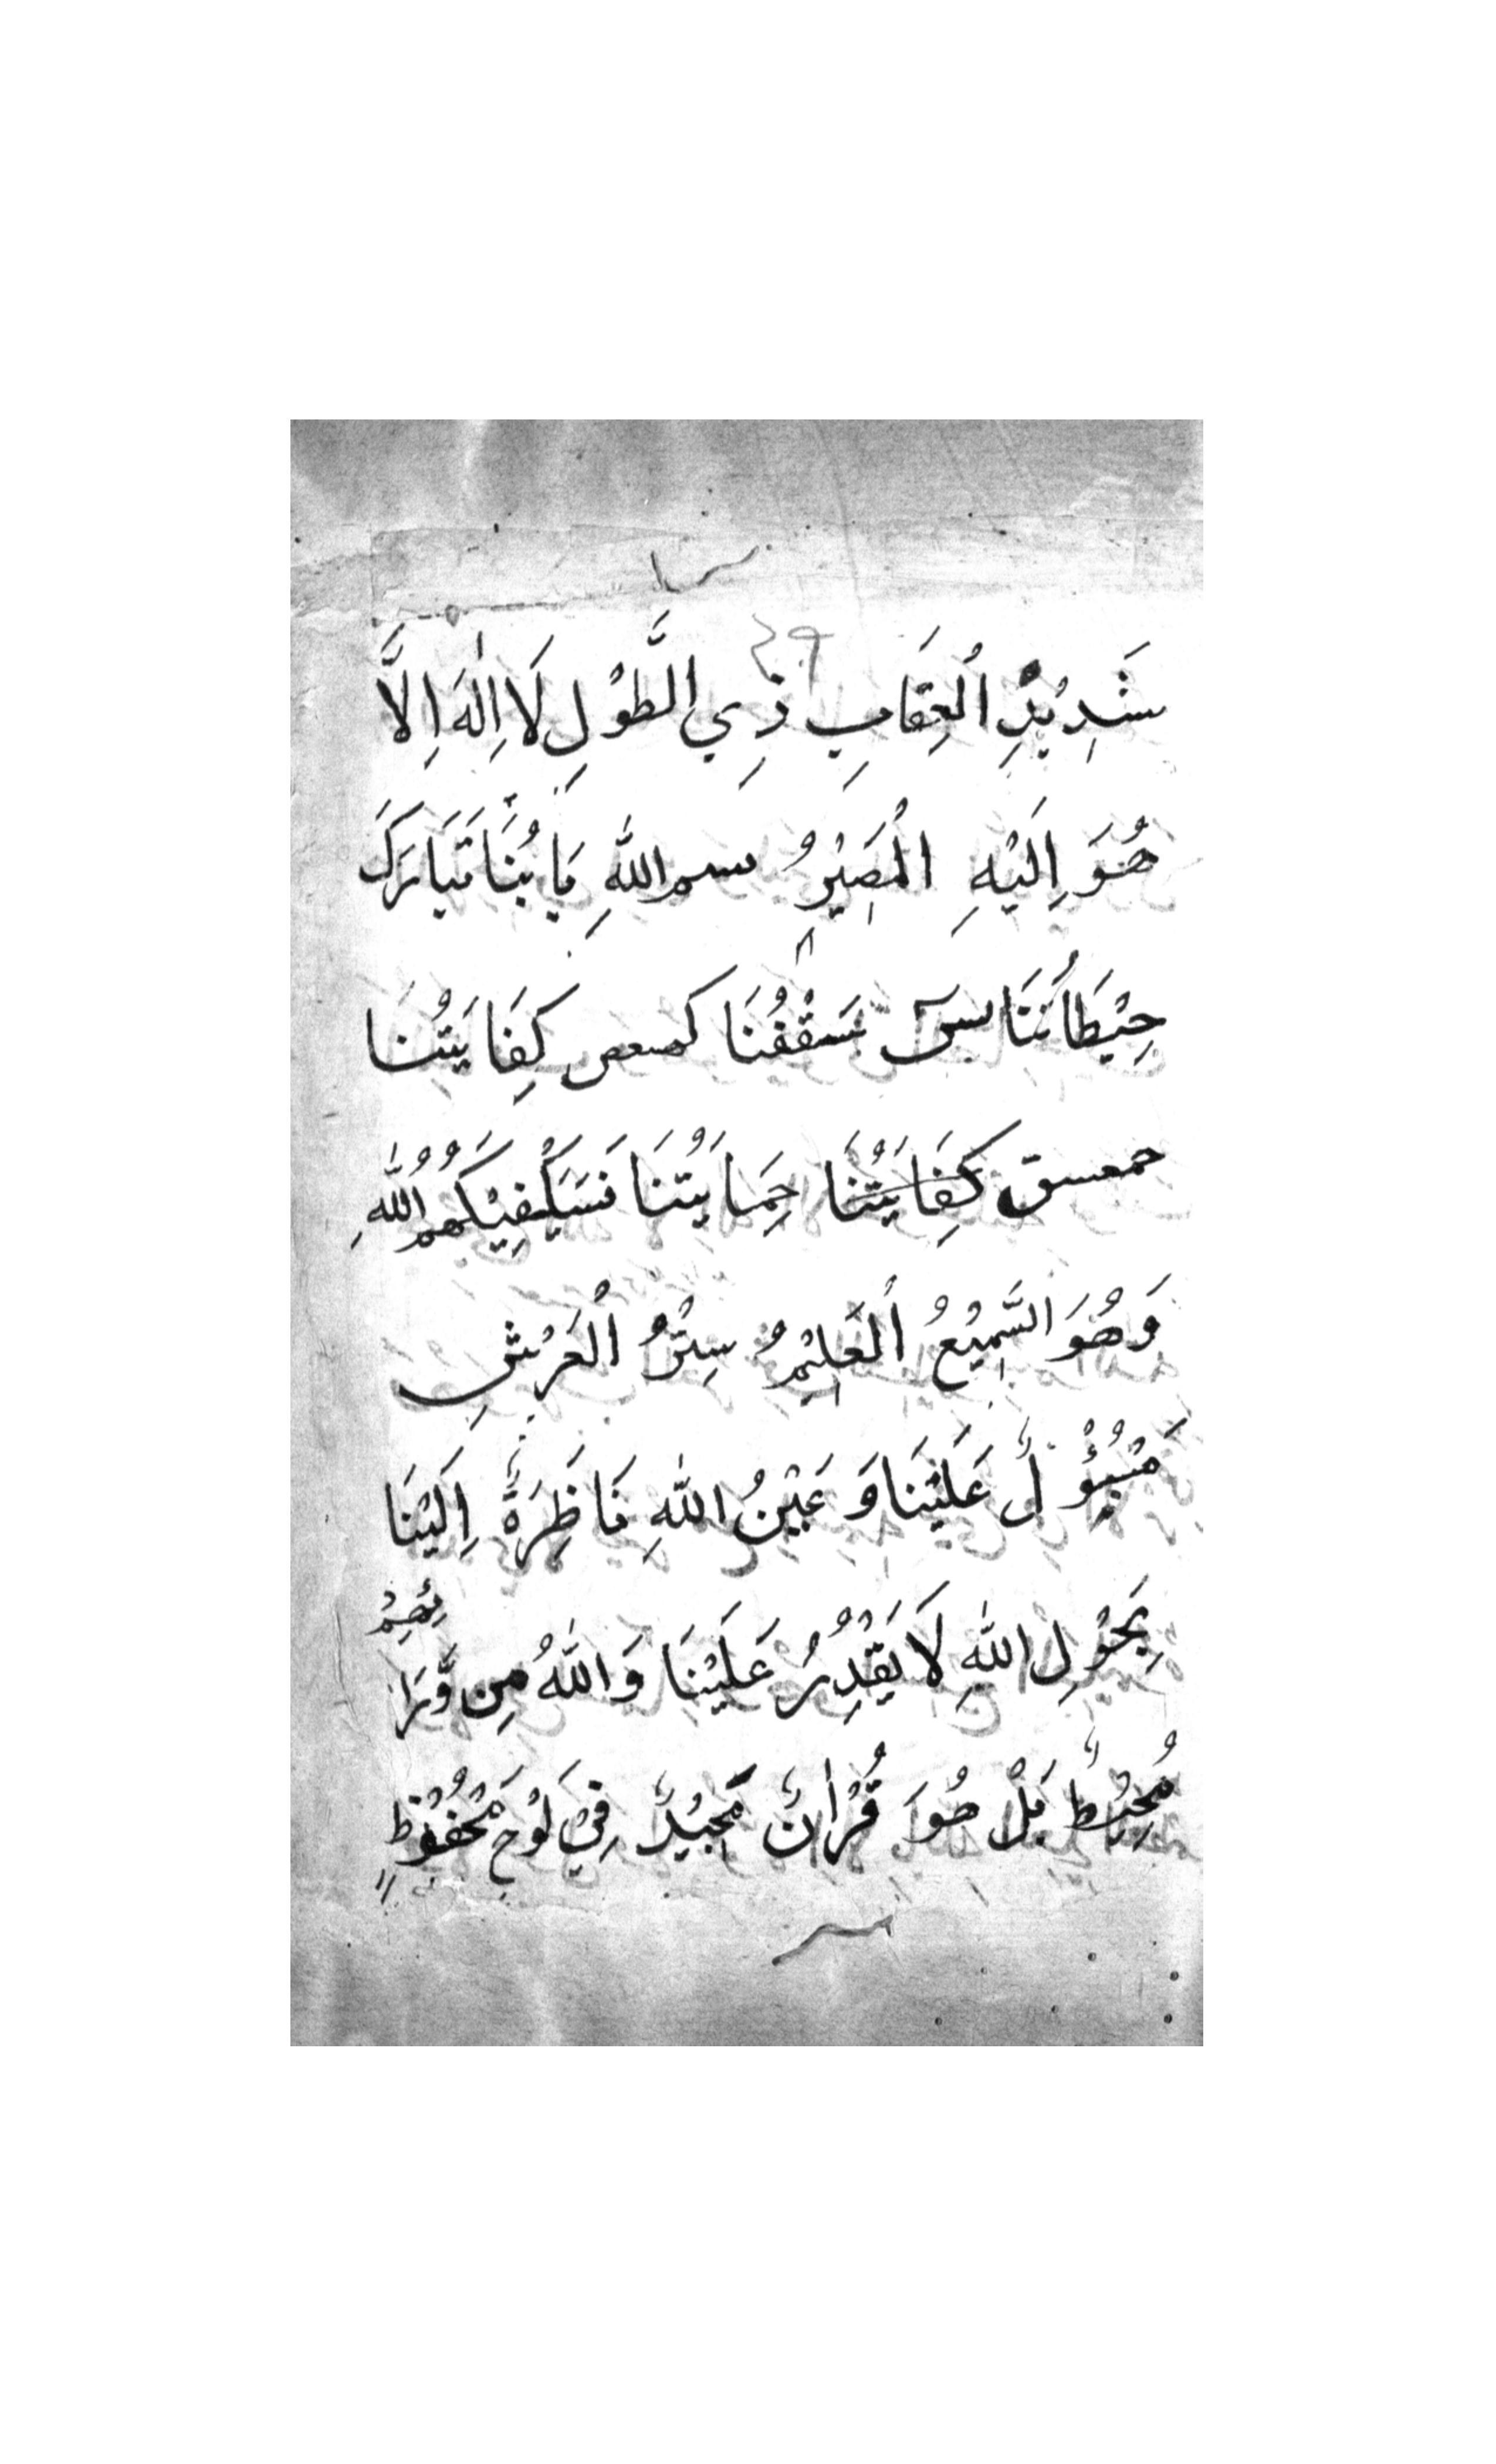 ٤٩
شَدِيْدِ الْعِقَابِ ذِي الطَّوْلِ لَا اِلٰهَ اِلَّا
هُوَ اِلَيْهِ الْمَصِيْرُ بسم اللهِ بَابُنَا تَبَارَكَ
حِيْطَانُنَا يسٓ سَقْفُنَا كهيعص كِفَايَتُنَا
حمعسق كِفَايَتُنَا حِمَايَتُنَا فَسَيَكْفِيْكَهُمُ اللهُ
وَهُوَ السَّمِيْعُ الْعَلِيْمُ سِتْرُ الْعَرْشِ
مَسْبُؤْلٌ عَلَيْنَا وَ عَيْنُ اللهِ نَاظِرَةٌ اِلَيْنَا
بِحَوْلِ اللهِ لَا يَقْدِرُ عَلَيْنَا وَاللهُ مِن وَّرَا
ئِهِمْ
مُحِيْطٌ بَلْ هُوَ قُرْاٰنٌ مَجِيْدٌ فِيْ لَوْحٍ مَحْفُوْظٍ